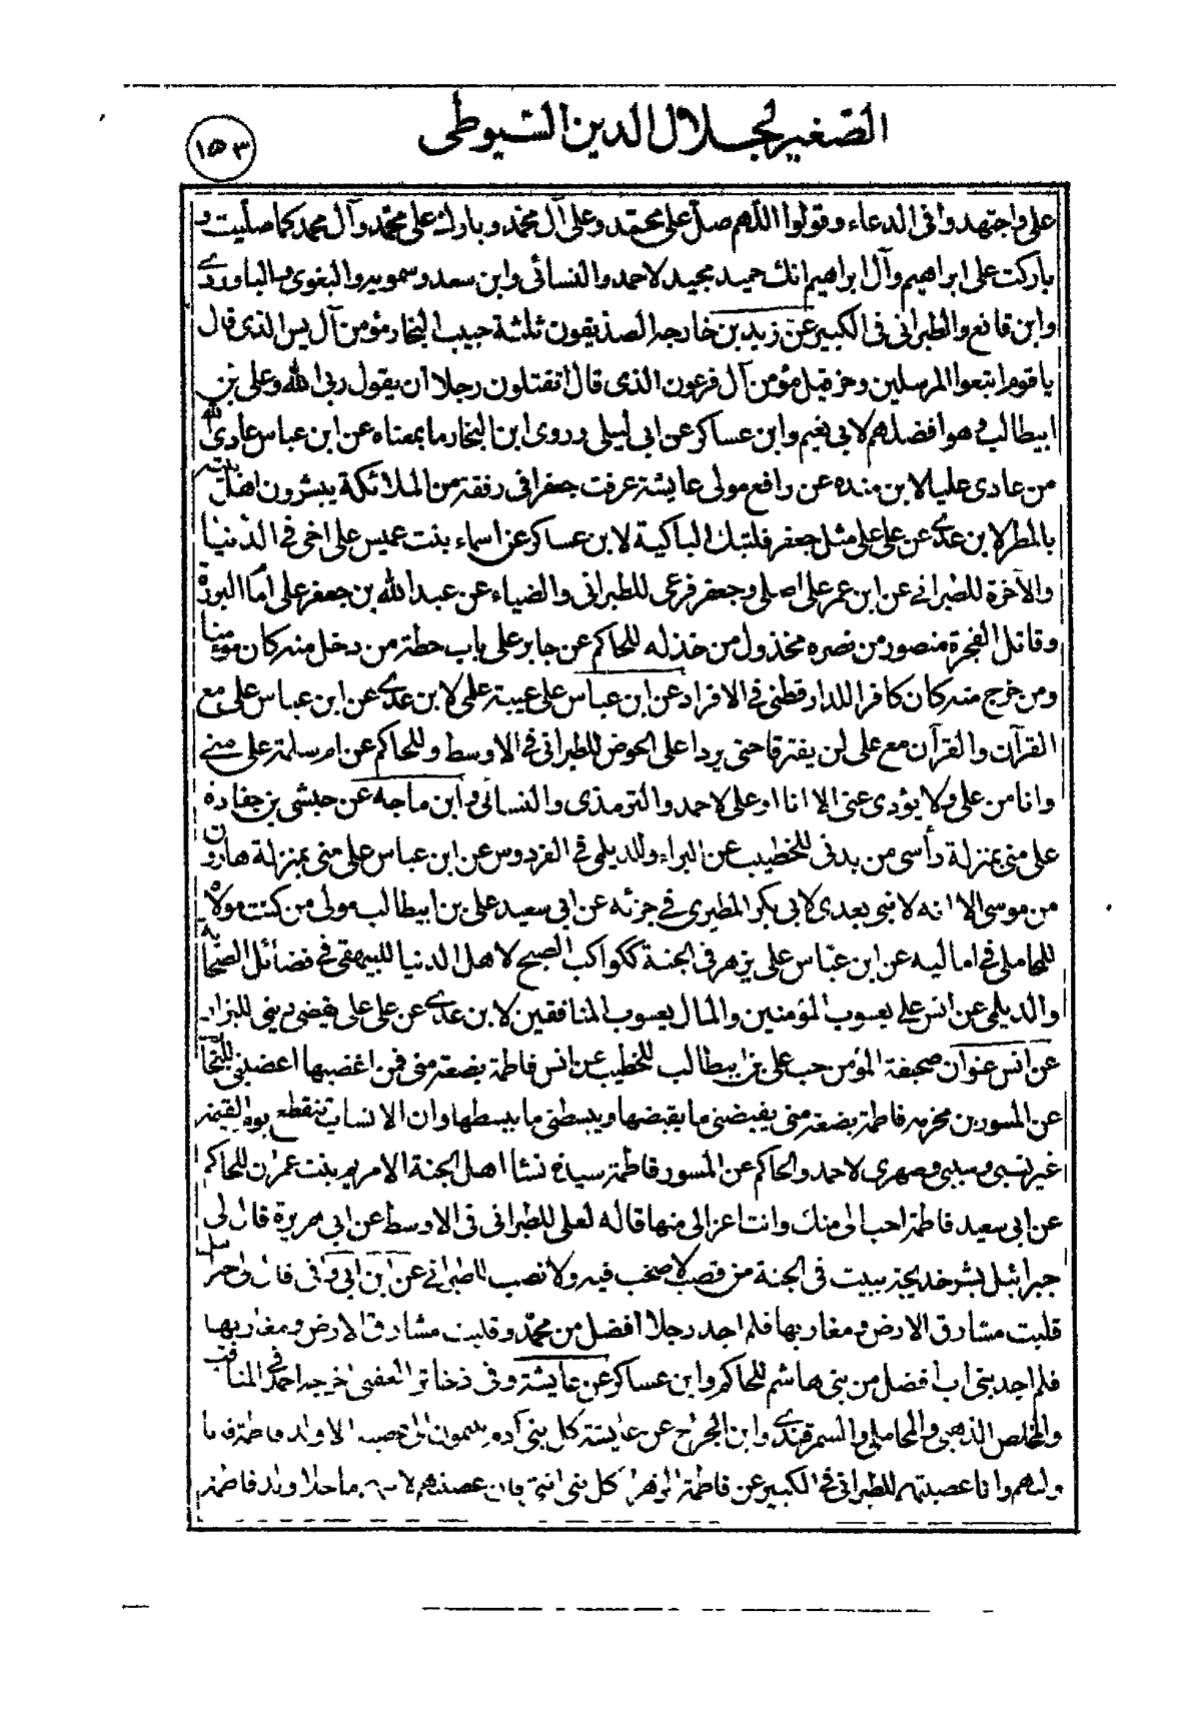 الصغير لجلال الدين السيوطى
١٥٣
على واجتهدوا فى الدعاء وقولوا اللهم صل على محمد وعلى آل محمد وبارك على محمد وآل محمد كما صليت و
باركت على ابراهيم وآل ابراهيم انك حميد مجيد لاحمد والنسائى وابن سعد وسمويه والبغوى والباوردى
وابن قانع والطبرانى فى الكبير عن زيد بن خارجه الصديقون ثلثة حبيب النجار مؤمن آل يس الذى قال
يا قوم اتبعوا المرسلين وحزقيل مؤمن آل فرعون الذى قال اتقتلون رجلا ان يقول ربى الله وعلى بن
ابيطالب وهو افضلهم لابى نعيم وابن عساكر عن ابى ليلى وروى ابن النجار ما بمعناه عن ابن عباس عادى الله
من عادى عليا لابن منده عن رافع مولى عايشة عرفت جعفرا فى رفقة من الملائكة يبشرون اهل
بالمطر لابن عدى عن على على مثل جعفر فلتبك الباكية لابن عساكر عن اسماء بنت عميس على اخى فى الدنيا
والآخرة للطبرانى عن ابن عمر على اصلى وجعفر فرعى للطبرانى والضياء عن عبد الله بن جعفر على امام البررة
وقاتل الفجرة منصور من نصره مخذول من خذله للحاكم عن جابر على باب حطة من دخل منه كان مومنا
ومن خرج منه كان كافرا للدار قطنى فى الافراد عن ابن عباس على عيبة علمى لابن عدى عن ابن عباس على مع
القرآن والقرآن مع على لن يفترقا حتى يردا على الحوض للطبرانى فى الاوسط وللحاكم عن ام سلمة على منى
وانا من على ولا يؤدى عنى الا انا او على لاحمد والترمذى والنسائى وابن ماجه عن حبشى بن جنادة
على منى بمنزلة رأسى من بدنى للخطيب عن البراء وللديلمى فى الفردوس عن ابن عباس على منى بمنزلة هارون
من موسى الا انه لا نبى بعدى لابى بكر المطيرى فى جزئه عن ابى سعيد على بن ابيطالب مولى من كنت مولاه
للمحاملى فى اماليه عن ابن عباس على يزهر فى الجنة ككواكب الصبح لاهل الدنيا للبيهقى فى فضائل الصحابة
والديلمى عن انس على يعسوب المؤمنين والمال يعسوب المنافقين لابن عدى عن على على يقضى دينى للبزار
عن انس عنوان صحيفة المؤمن حب على بن ابيطالب للخطيب عن انس فاطمة بضعة منى فمن اغضبها اغضبنى للبخا
عن المسور بن مخرمه فاطمة بضعة منى يقبضنى ما يقبضها ويبسطنى ما يبسطها وان الانساب تنقطع يوم القيمة
غير نسبى وسببى وصهرى لاحمد والحاكم عن المسور فاطمة سيدة نساء اهل الجنة الا مريم بنت عمران للحاكم
عن ابى سعيد فاطمة احب الى منك وانت اعز الى منها قاله لعلى للطبرانى فى الاوسط عن ابى هريرة قال لى
جبرائيل بشر خديجة ببيت فى الجنة من قصب لا صخب فيه ولا نصب للطبرانى عن ابن ابى اوفى قال لى جبرئيل
قلبت مشارق الارض ومغاربها فلم اجد رجلا افضل من محمد وقلبت مشارق الارض ومغاربها
فلم اجد بنى اب افضل من بنى هاشم للحاكم وابن عساكر عن عايشة وفى ذخائر العقبى خرجه احمد فى المناقب
والمخلص الذهبى والمحاملى والسمرقندى وابن الجراح عن عايشة كل بنى آدم ينتمون الى عصبة الا ولد فاطمة فانا
وليهم وانا عصبتهم للطبرانى فى الكبير عن فاطمة الزهرا كل بنى انثى فان عصبتهم لابيهم ما خلا ولد فاطمة